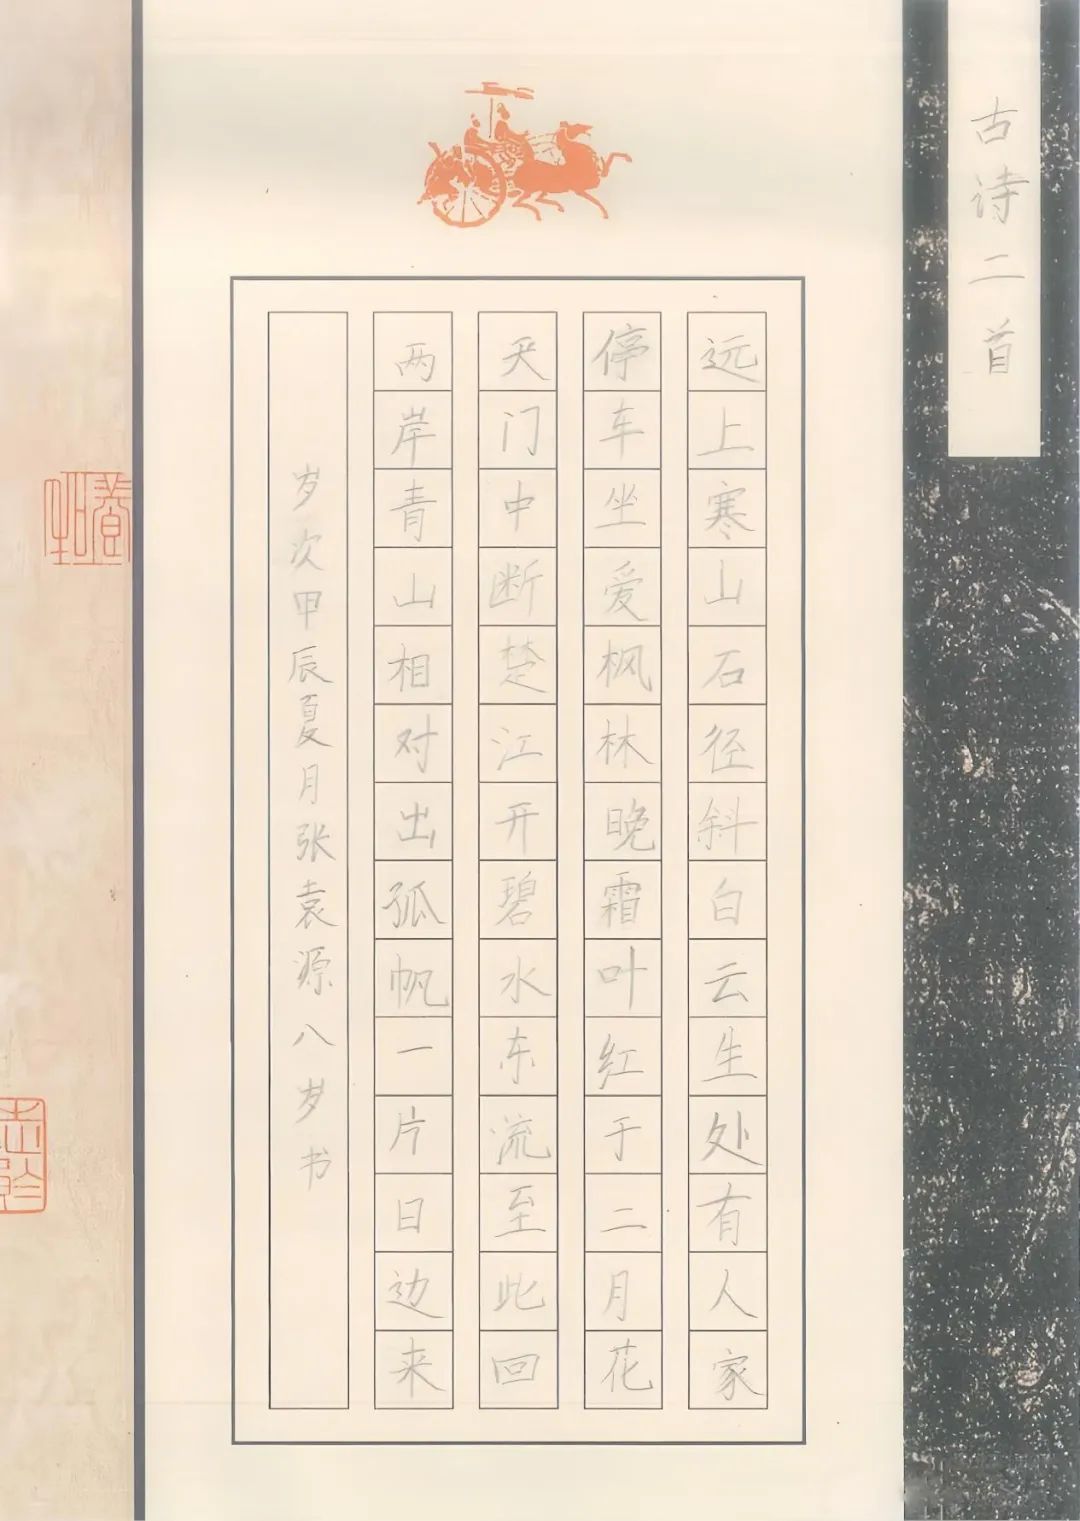 古诗二首
远上寒山石径斜白云生处有人家
停车坐爱枫林晚霜叶红于二月花
天门中断楚江开碧水东流至此回
两岸青山相对出孤帆一片日边来
岁次甲辰夏月张袁源八岁书